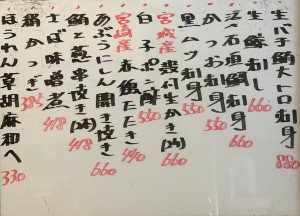 生バチ鮪大トロ刺身 880
生鯨刺し 660
活〆石垣鯛刺身 660
かつお刺身 550
黒ムツ刺身 550
白子ポン酢 550
宮城産 殻付生かき(2ヶ) 660
宮崎産 赤魚たたき 440
あぶらにしん開き焼き 660
鮪と葱串焼き(2本) 418
さば味噌煮 418
鯛かっぱ 385
ほうれん草胡麻和へ 330